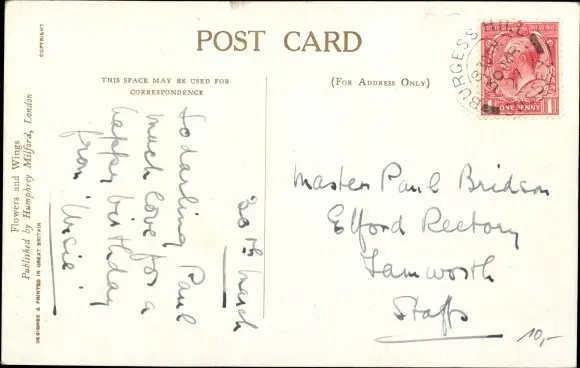 COPYRIGHT
POST CARD
THIS SPACE MAY BE USED FOR
CORRESPONDENCE
(FOR ADDRESS ONLY)
Flowers and Wings
Published by Humphrey Milford, London
DESIGNED & PRINTED IN GREAT BRITAIN
30th March
To darling Paul
much love for a
happy birthday
from
Master Paul Bridson
Elford Rectory
Tamworth
Staffs
10,-
BURGESS HILL
SUSSEX
MR
ONE PENNY
1
1